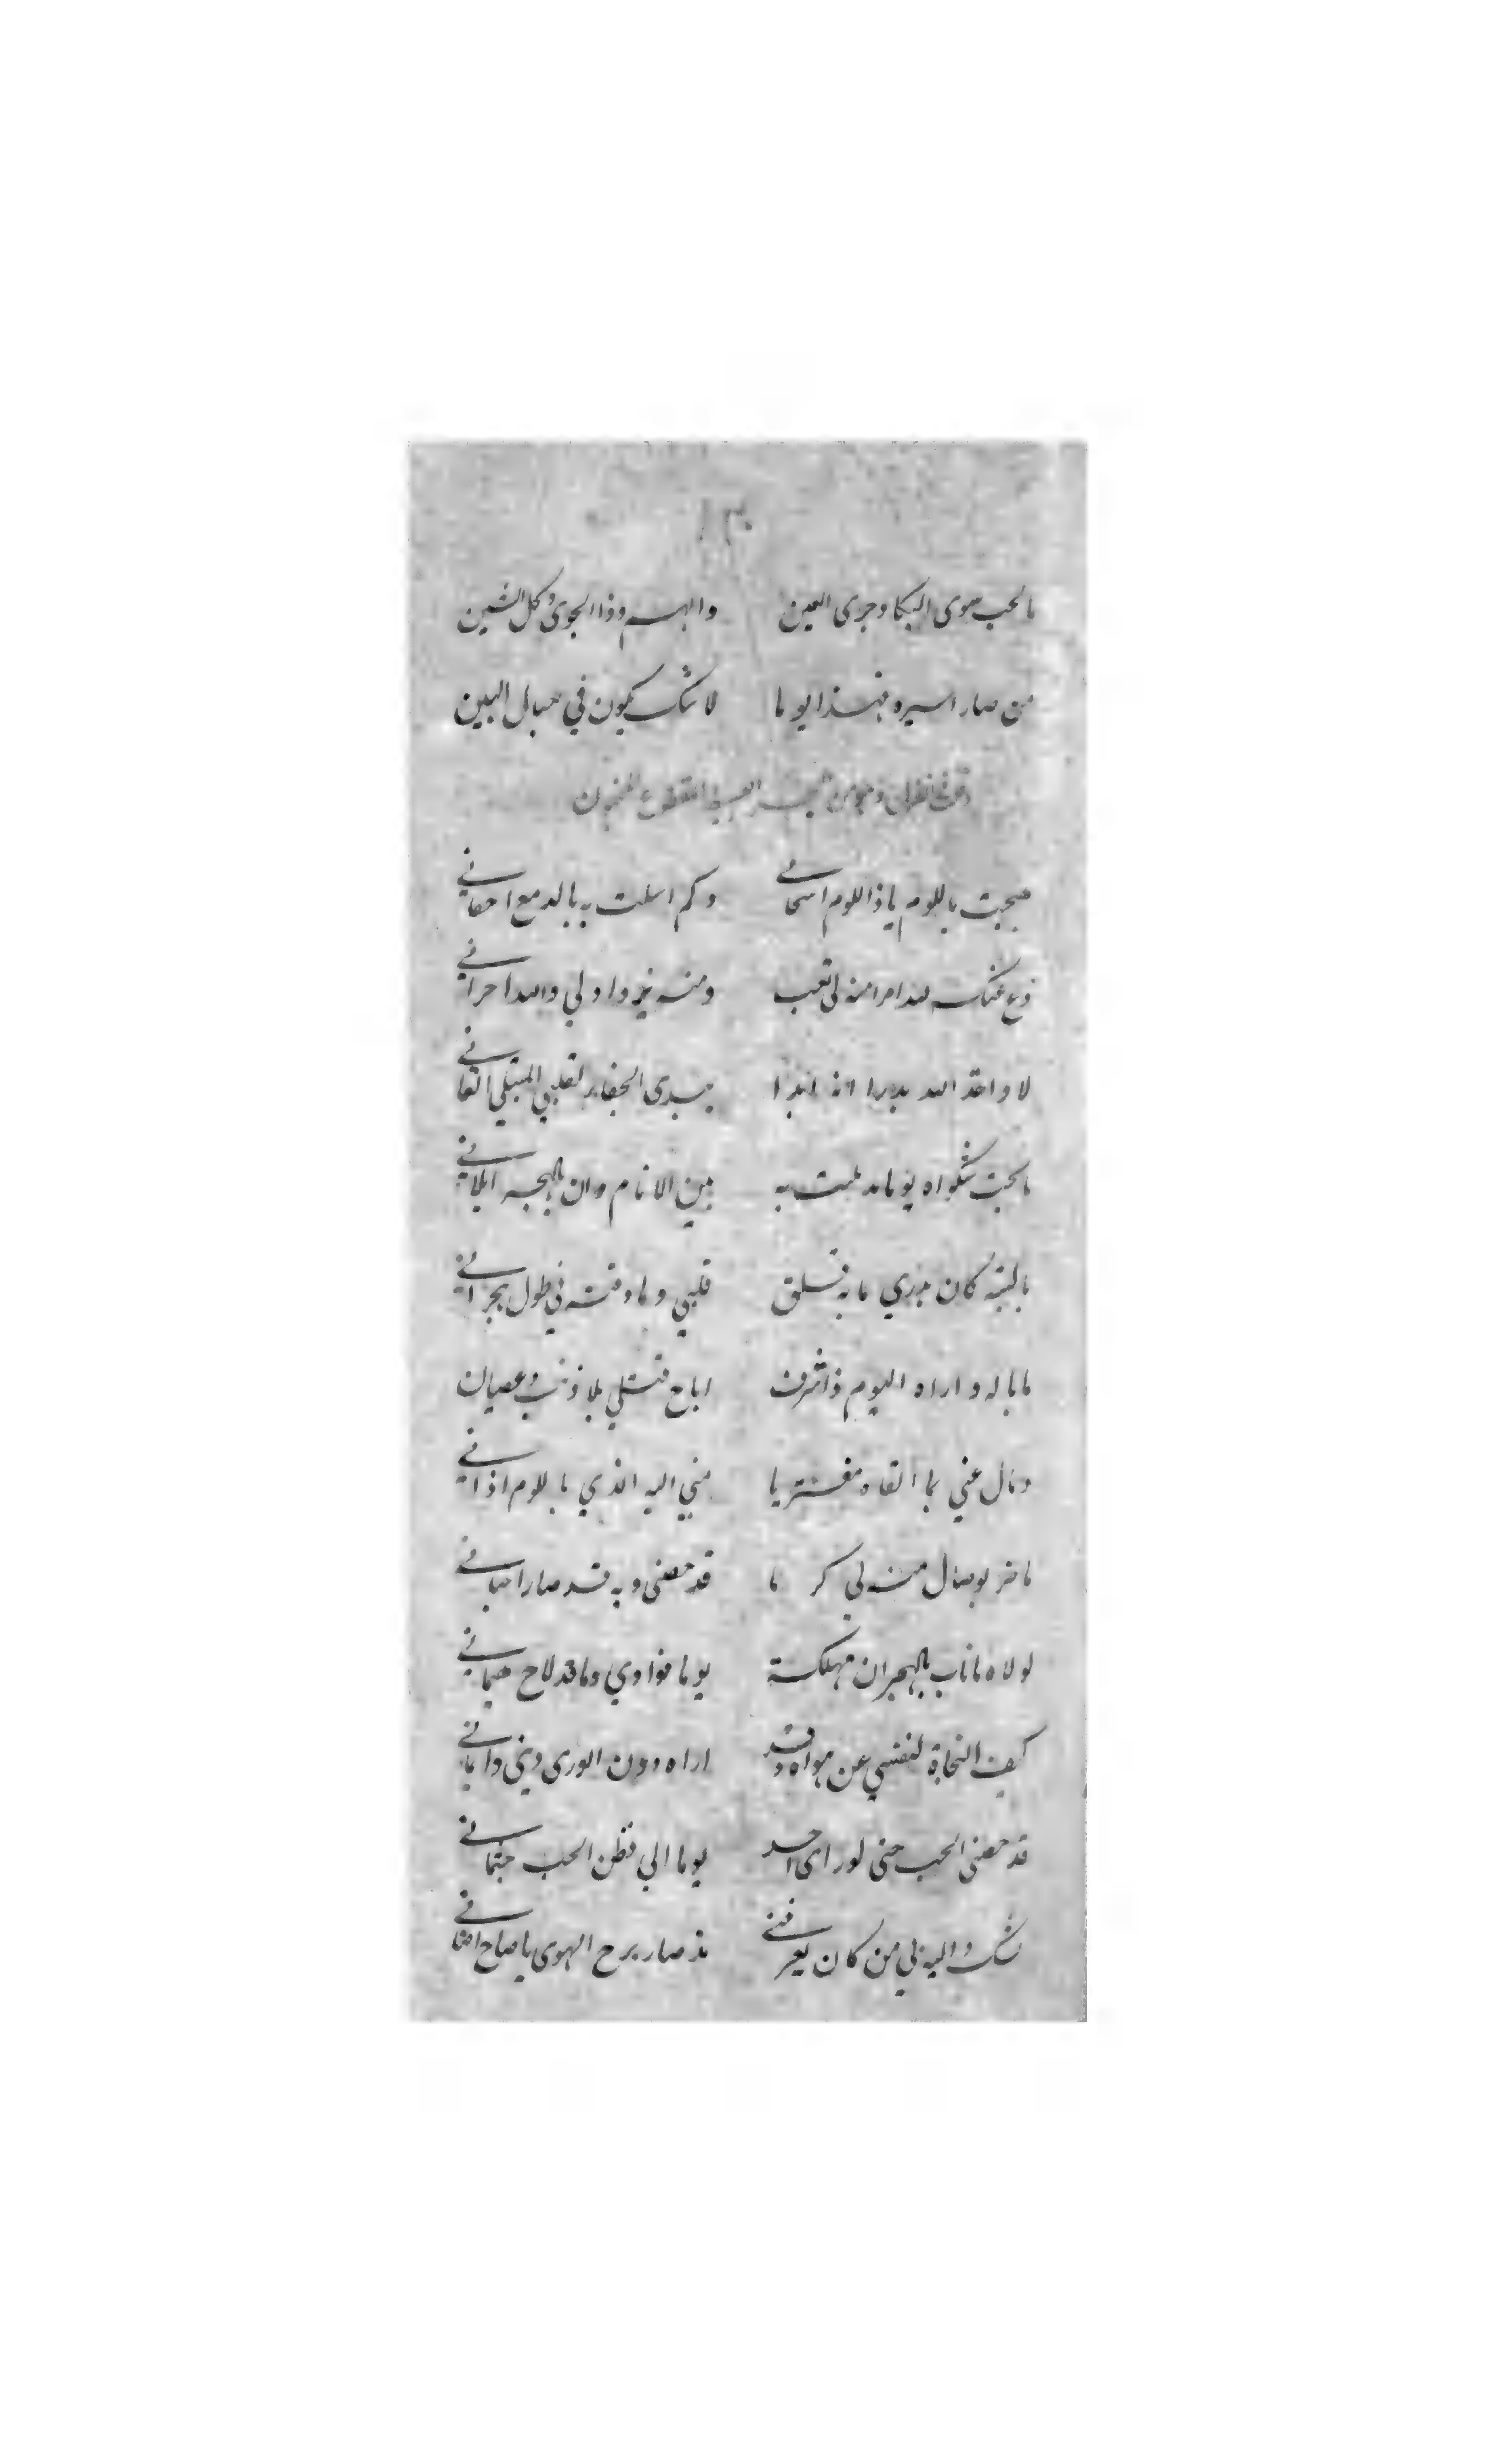 ١٣٠
ما الحب سوى البكا وجرى العين والهم وذا الجوى وكل الشين
من صار اسيره فهذا يوما لا شك يكون في حبال البين
وهو من البسيط المقطوع المخبون
هيجت باللوم يا ذا اللوم اشجاني وكم اسلت به بالدمع اجفاني
دع عنك هذا مرا منه لي تعب ومنه يزداد لي والله احزاني
لا واخذ الله بدرا انه ابدا يبدى الجفاء لقلبي المبتلي القاني
ما بحت شكواه يوما مذ بليت به بين الانام وان بالهجر ابلاني
يا ليته كان يدري ما به قلق قلبي وما ذقته في طول هجراني
ما باله واراه اليوم ذا شرف اباح قتلي بلا ذنب وعصيان
ومال عني بما القاه مفتريا مني اليه الذي باللوم اذاني
ما ضر بوصال منه لي كرما قد خصني وبه قد صار احياني
لولاه ما ناب بالهجران مهلكة يوما فوادي وما قد لاح هيماني
كيف النجاة لنفسي عن هواه وقد اراه دون الورى ديني وايماني
قد خصني الحب حتى لو راى احد يوما الي فظن الحب جثماني
شك واليه لي من كان يعرفني مذ صار برح الهوى يا صاح افناني